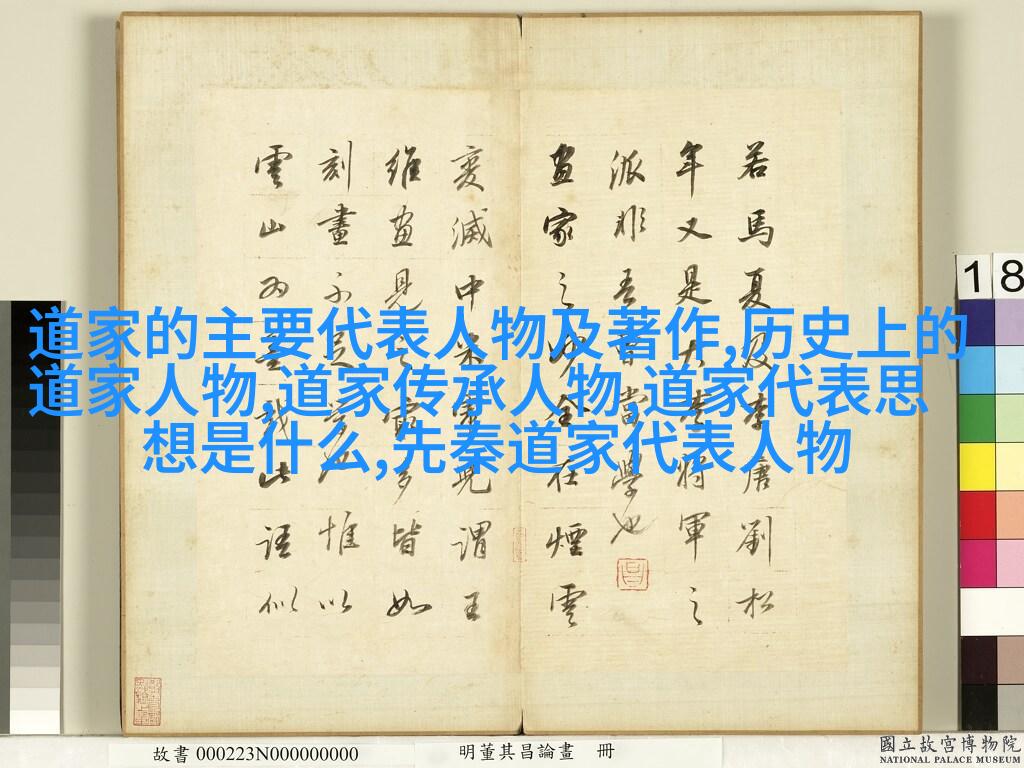 道家的主要代表人物及著作,历史上的
道家人物,道家传承人物,道家代表思
想是什么,先秦道家代表人物
若馬夏及李唐劉松
年又是大李将軍之
派非吾曹當學也
畫家之妙全在煙雲
變滅中米虎兒謂王
維畫見之最多皆如
刻畫不足學也惟以
雲山為墨戲此語似
18
故書 000223N000000000
明董其昌論畫 冊
國立故宮博物院
NATIONAL PALACE MUSEUM